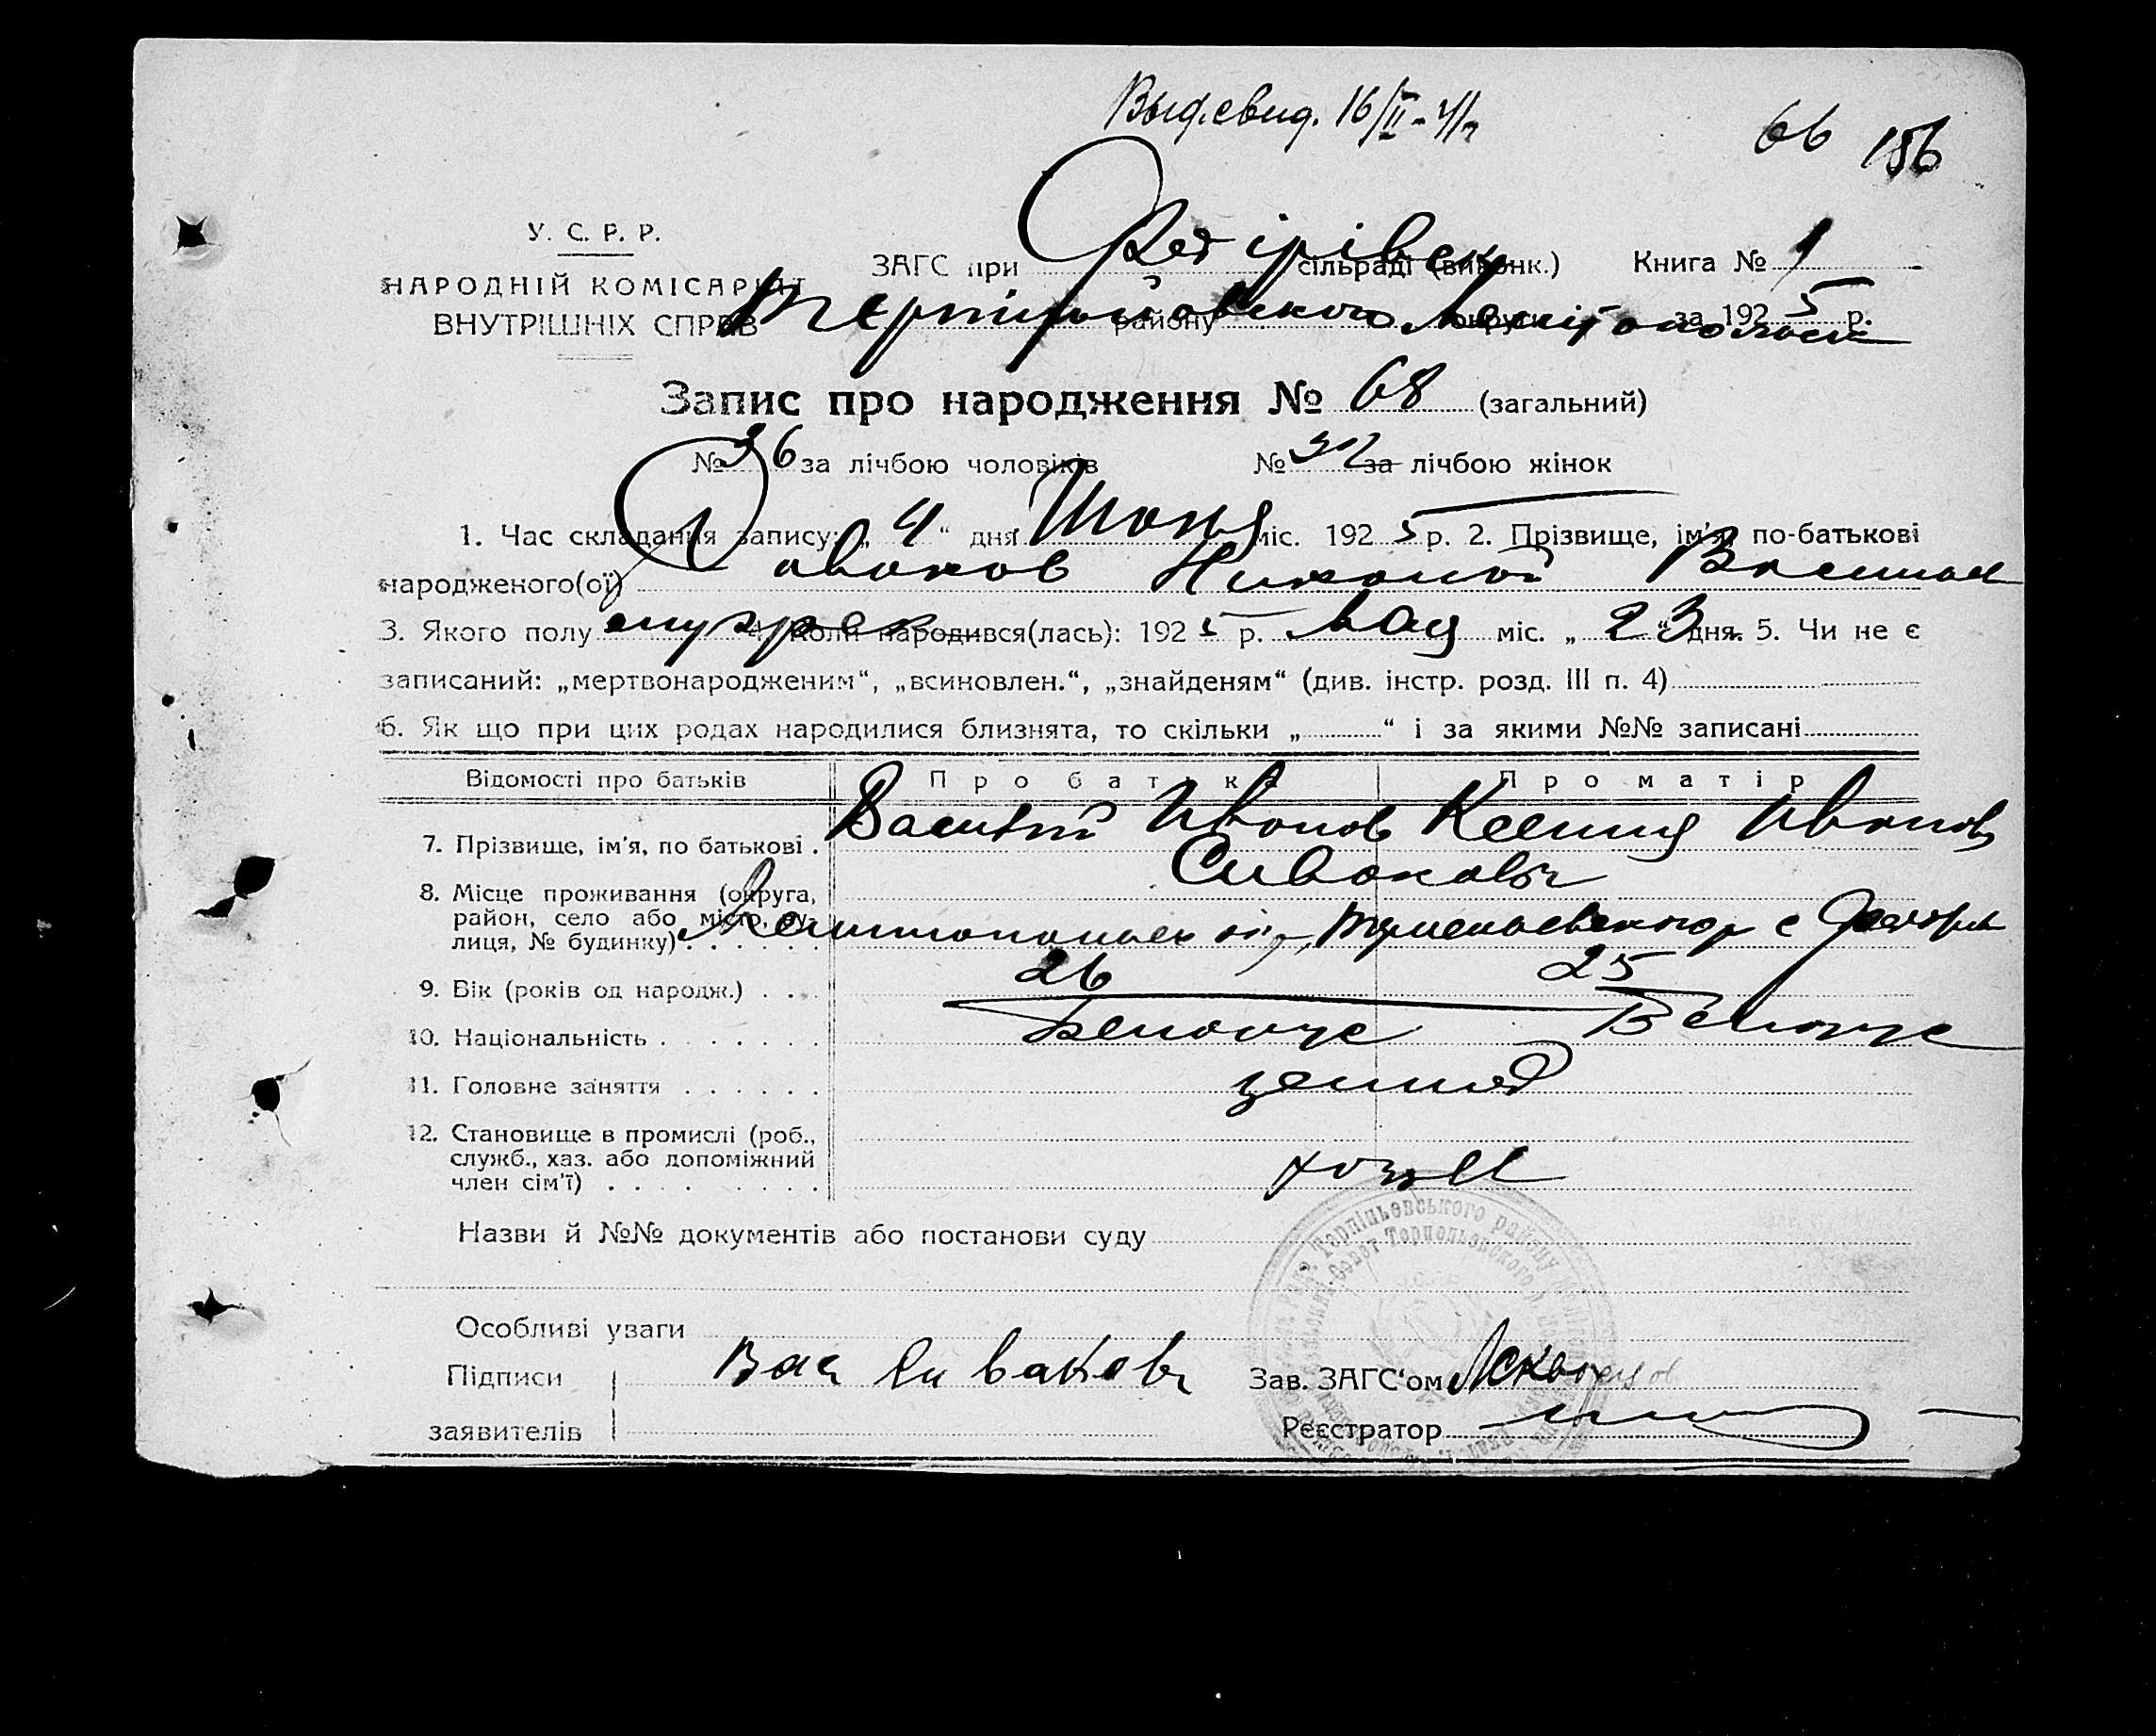 Выд. свид. 16/II-41 г
66 156
У. С. Р. Р.
НАРОДНІЙ КОМІСАРІЯТ
ВНУТРІШНІХ СПРАВ
ЗАГС при сільраді (виконк.) Книга № 1
району округи за 1925 р.
Запис про народження № 68 (загальний)
№ 36 за лічбою чоловіків № 32 за лічбою жінок
1. Час складання запису: „ 4 “ дня Июня міс. 1925 р. 2. Прізвище, ім'я, по-батькові
народженого(ої) Николай
3. Якого полу 4. Коли народився(лась): 1925 р. Мая міс. „ 23 “ дня. 5. Чи не є
записаний: „мертвонародженим“, „всиновлен.“, „знайденям“ (див. інстр. розд. III п. 4)
6. Як що при цих родах народилися близнята, то скільки „ “ і за якими №№ записані
Відомості про батьків Про батька Про матір
7. Прізвище, ім'я, по батькові . Василий Иванов Ксения Иванов
Сиваковы
8. Місце проживання (округа,
район, село або місто, ву-
лиця, № будинку)
9. Вік (років од народж.) . . . 26 25
10. Національність . . . . . . . Белорус Белорус
11. Головне заняття . . . . . . землед
12. Становище в промислі (роб.,
служб., хаз. або допоміжний
член сім'ї) . . . . . . . . хозяев
Назви й №№ документів або постанови суду
Особливі уваги
Підписи Вас Сиваков Зав. ЗАГС'ом
заявителів Реєстратор